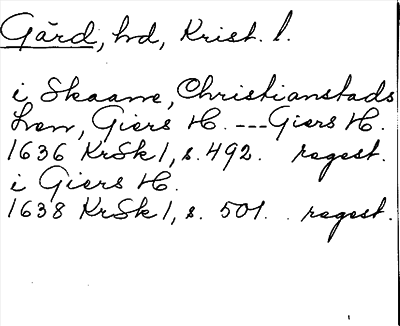 Gärd, hd, Krist. l.
i Skaane, Christianstads
Len, Giers H. --- Giers H.
1636 KrSk 1, s. 492. regest.
i Giers H.
1638 KrSk 1, s. 501. regest.